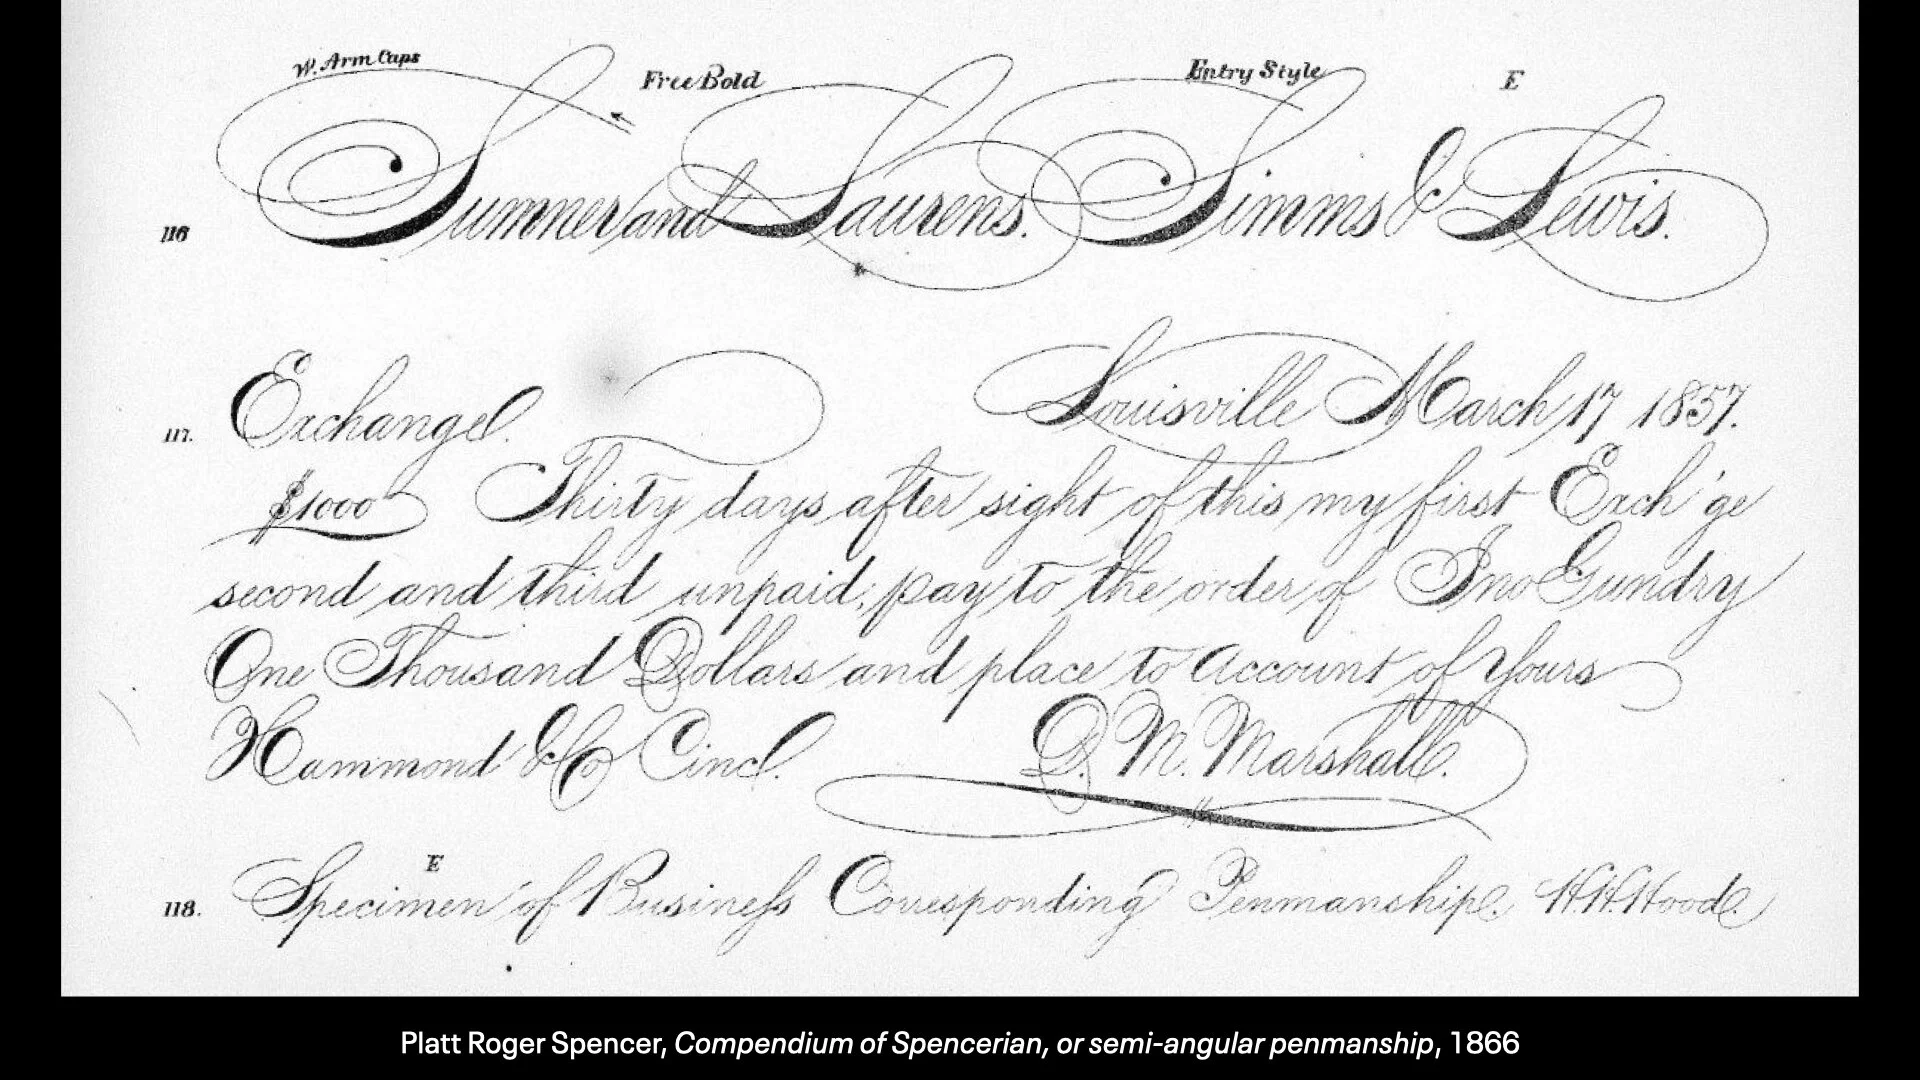 W. Arm Caps Free Bold Entry Style E
116 Sumner and Laurens. Simms & Lewis.
117. Exchange. Louisville March 17 1857.
$1000 Thirty days after sight of this my first Exch'ge
second and third unpaid, pay to the order of Jno Gundry
One Thousand Dollars and place to Account of Yours
Hammond & Co Cincl. D. M. Marshall.
E
118. Specimen of Business Corresponding Penmanship. H.H. Hood.
Platt Roger Spencer, Compendium of Spencerian, or semi-angular penmanship, 1866